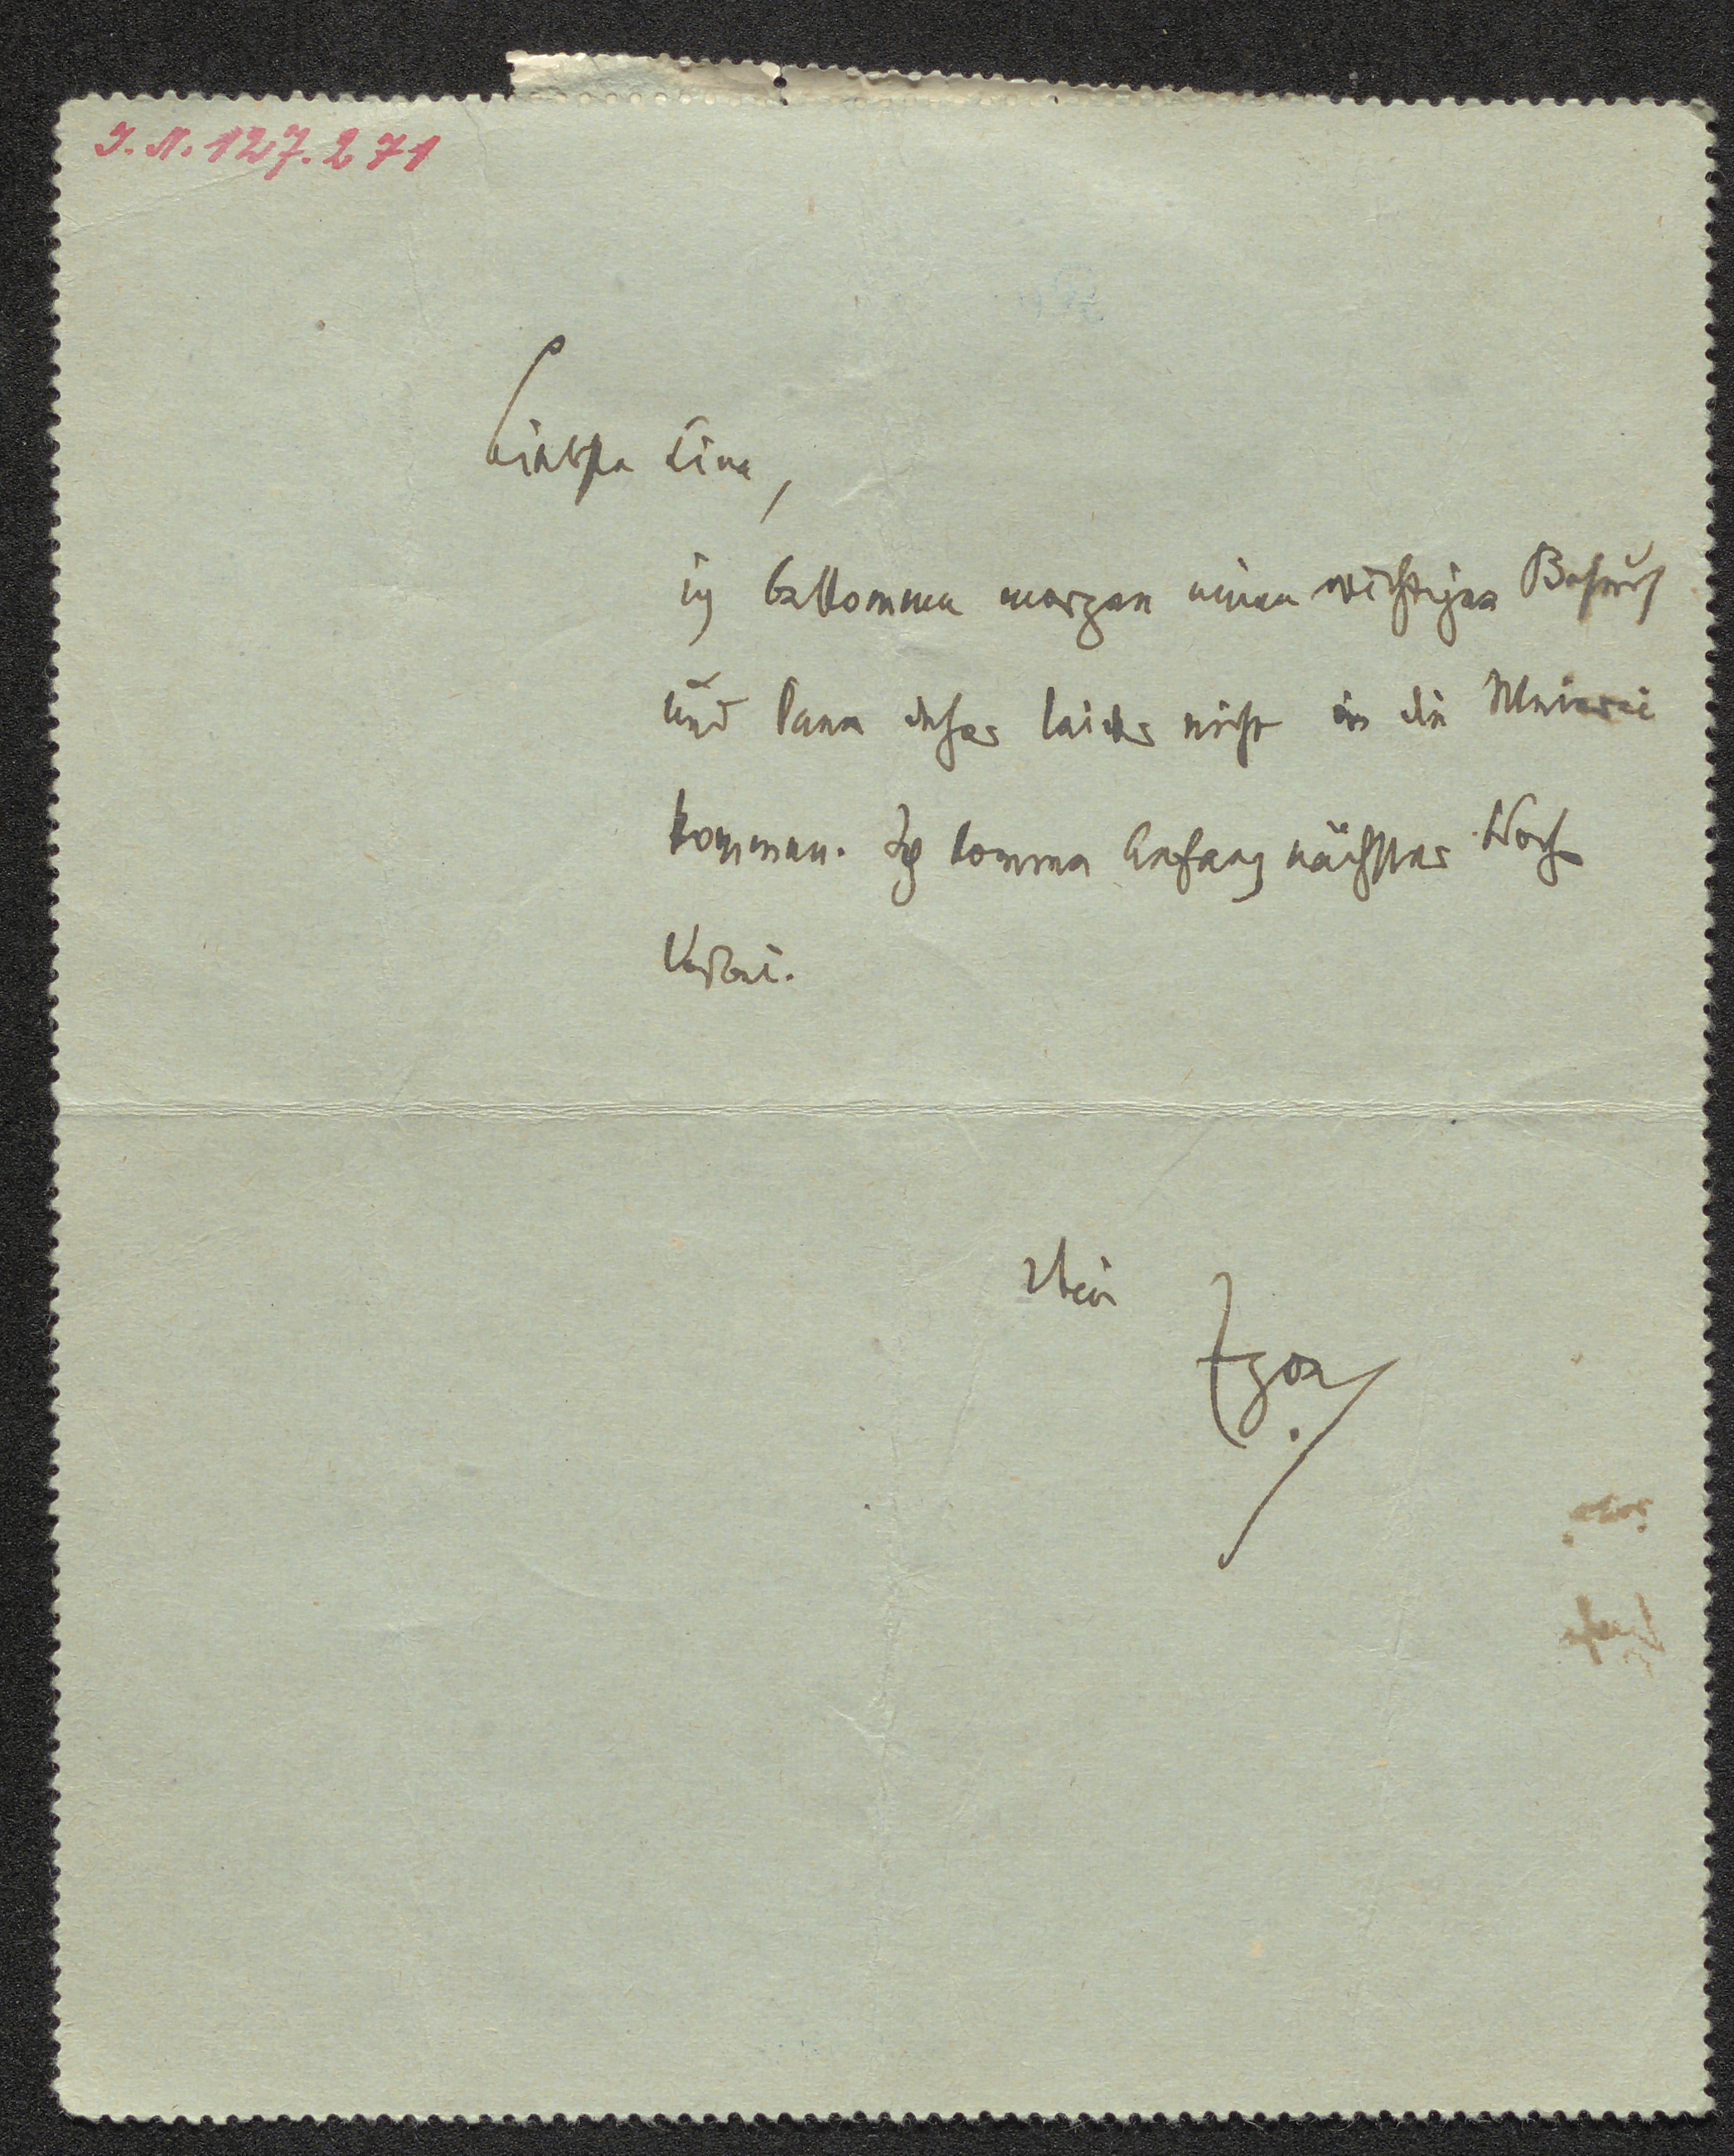 J.N. 127.271
Liebste Lina,
ich bekomme morgen einen wichtigen Besuch
und kann daher leider nicht in die Meierei
kommen. Ich komme Anfang nächster Woche
vorbei.
Dein
Egon